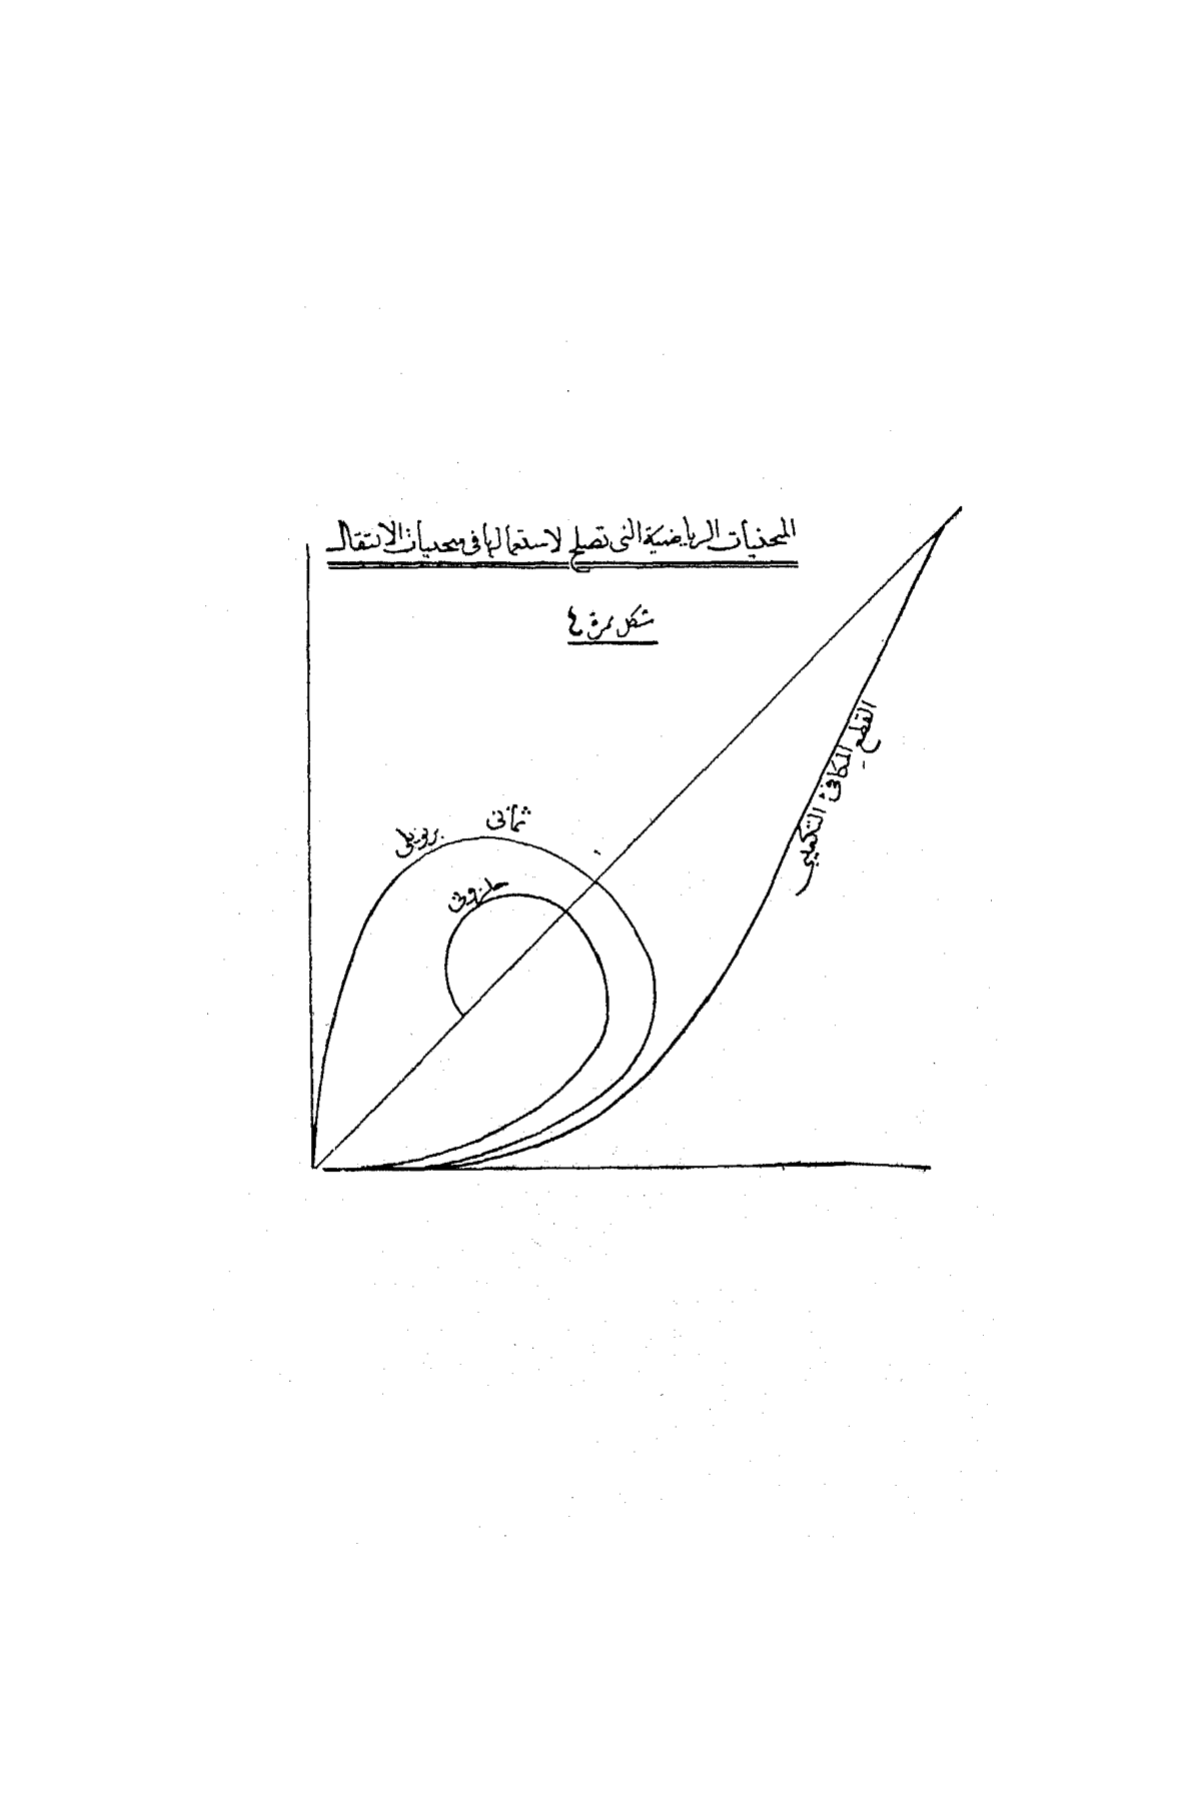 المنحنيات الرياضية التى تصلح لاستعمالها فى منحنيات الانتقال
شكل نمرة ٤
ثمانى برنويلى
حلزونى
القطع المكافئ التكعيبى